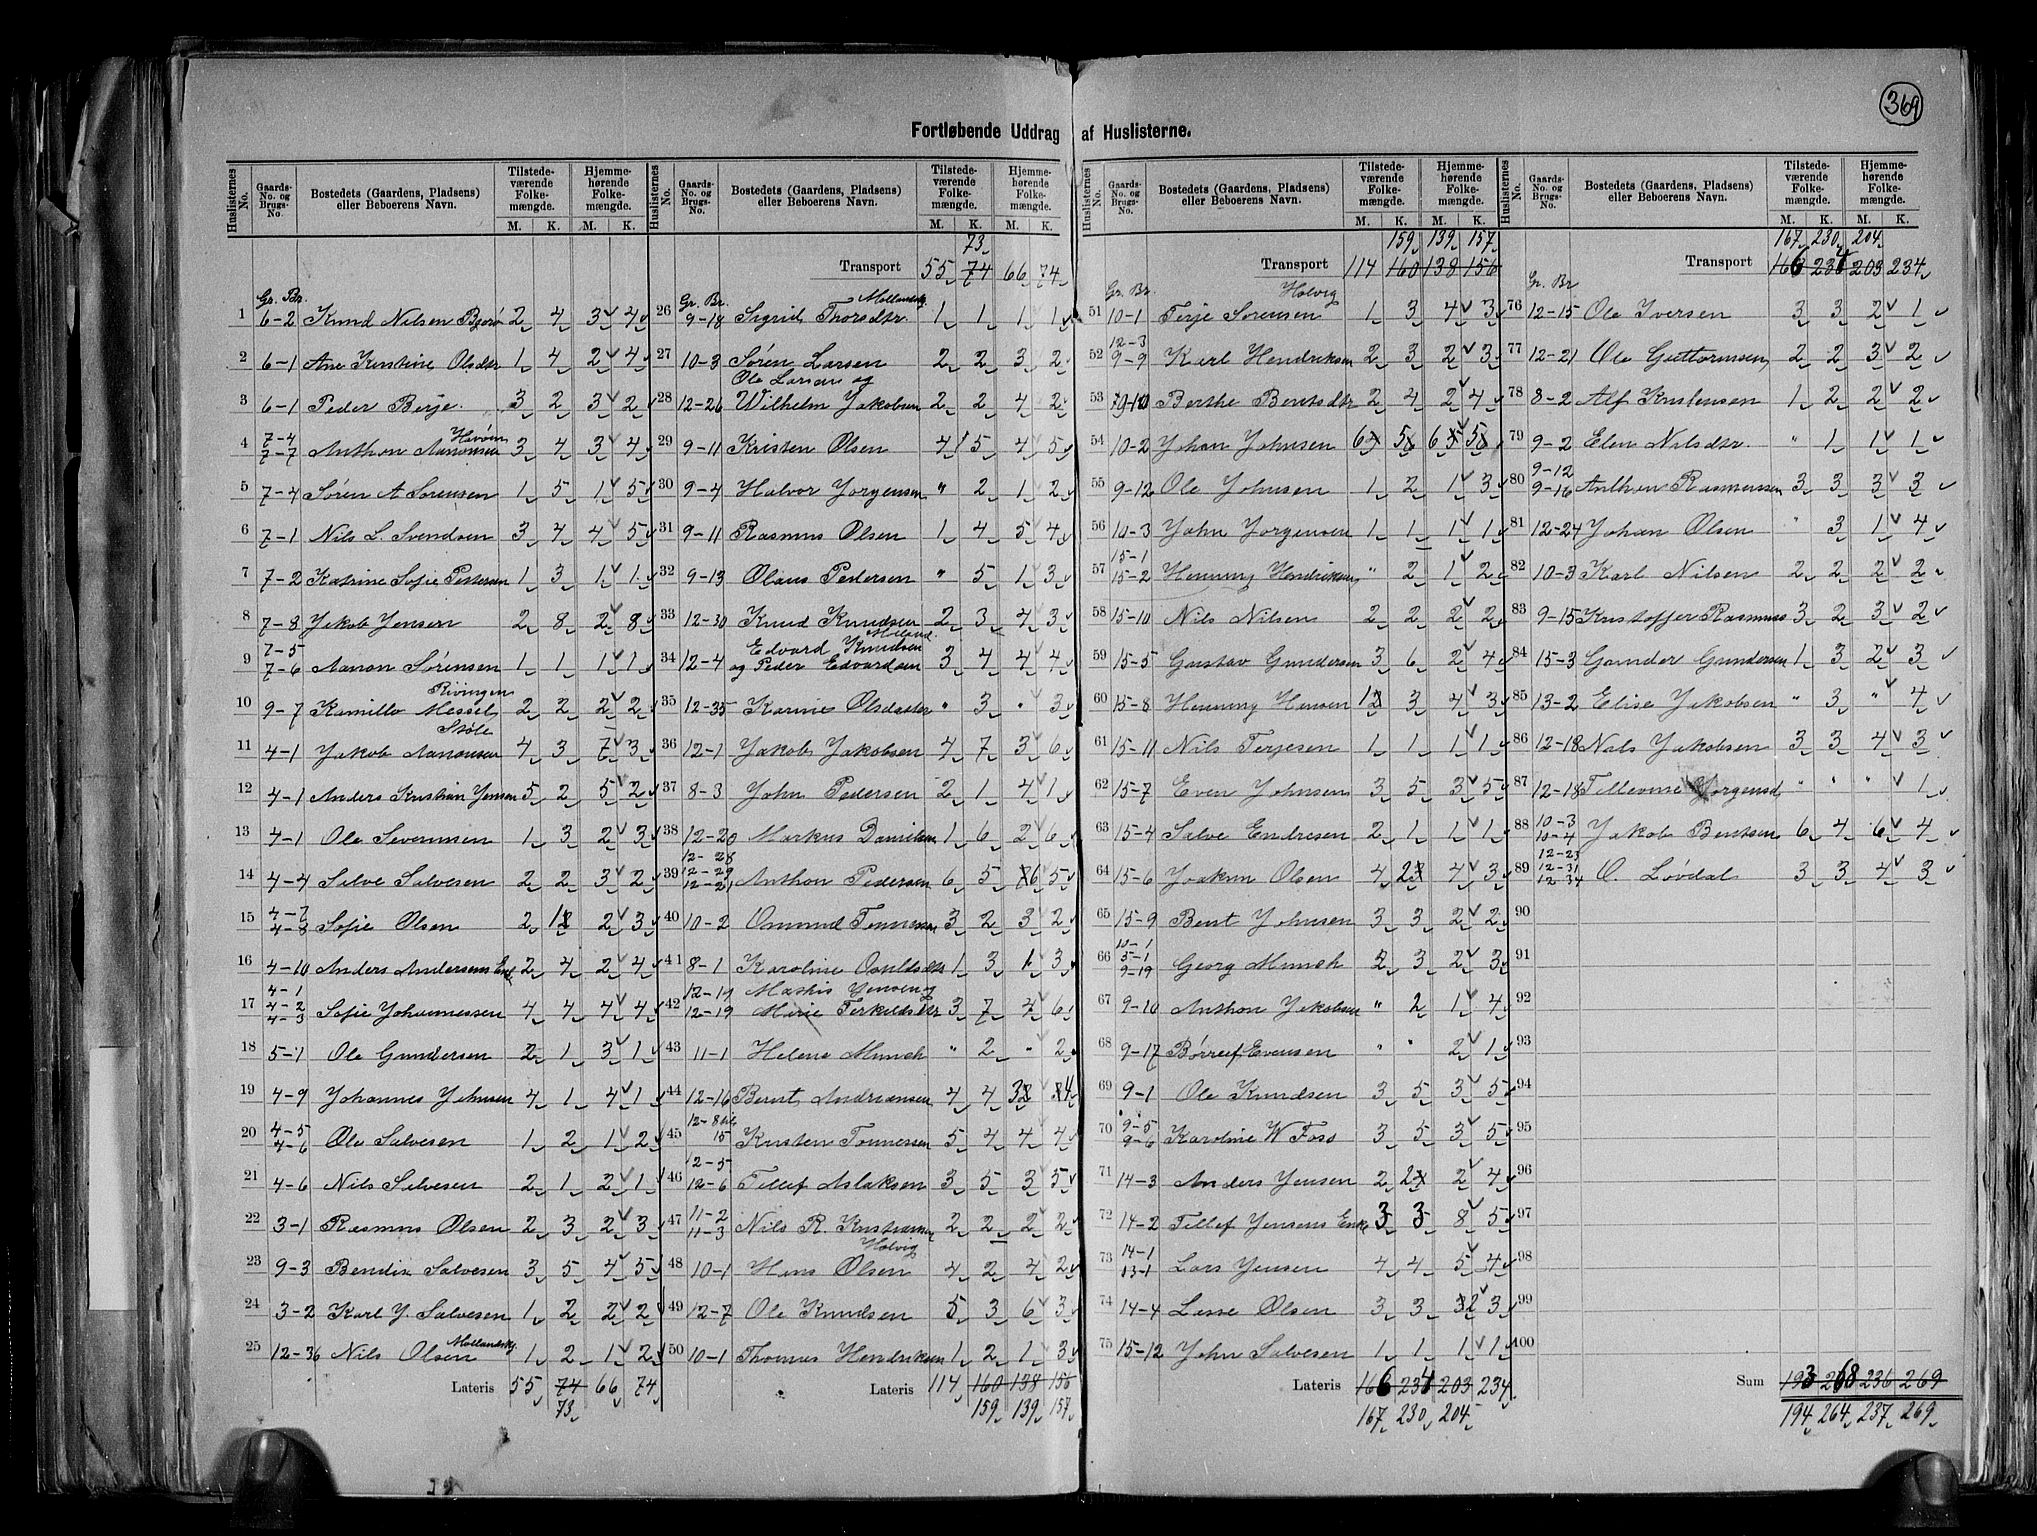 369
Fortløbende Uddrag af Huslisterne.
Huslisternes No. Gaards-No. og Brugs-No. Bostedets (Gaardens, Pladsens) eller Beboerens Navn. Tilstedeværende Folkemængde. M. K. Hjemmehørende Folkemængde. M. K.
Gr. Br.
1 6-2 Knud Nilsen Bjorø 2 4 3 4
2 6-1 Ane Kirstine Olsdtr 1 4 2 4
3 6-1 Peder Berje 3 2 3 2
Havøen
4 7-4 7-7 Anthon Aanonsen 3 4 3 4
5 7-4 Sören A Sorensen 1 5 1 5
6 7-1 Nils L. Svendsen 3 4 4 5
7 7-2 Katrine Sofie Petersen 1 3 1 1
8 7-8 Jakob Jensen 2 8 2 8
9 7-5 7-6 Aanon Sørensen 1 1 1 1
Rivingen
10 9-7 Kamillo Messel 2 2 2 2
Støle
11 4-1 Jakob Aanonsen 4 3 7 3
12 4-1 Anders Kristian Jensen 5 2 5 2
13 4-1 Ole Severinsen 1 3 2 3
14 4-4 Salve Salvesen 2 2 3 2
15 4-7 4-8 Sofie Olsen 2 1 2 3
16 4-10 Anders Andersens Enk 2 4 2 4
17 4-1 4-2 4-3 Sofie Johannessen 4 4 4 4
18 5-1 Ole Gundersen 2 1 3 1
19 4-9 Johannes Johnsen 4 1 4 1
20 4-5 4-6 Ole Salvesen 1 2 1 2
21 4-6 Nils Salvesen 2 1 2 1
22 3-1 Rasmus Olsen 2 3 2 3
23 9-3 Bendix Salvesen 3 5 4 5
24 3-2 Karl J. Salvesen 1 2 2 2
Mollandsk.
25 12-36 Nils Olsen 1 2 1 2
Lateris 55 74 66 74
73
Huslisternes No. Gaards-No. og Brugs-No. Bostedets (Gaardens, Pladsens) eller Beboerens Navn. Tilstedeværende Folkemængde. M. K. Hjemmehørende Folkemængde. M. K.
73
Transport 55 74 66 74
Gr. Br. Mollandsk.
26 9-18 Sigrid Thorsdtr. 1 1 1 1
27 10-3 Søren Larsen 2 2 3 2
Ole Larsen og
28 12-26 Wilhelm Jakobsen 2 2 4 2
29 9-11 Kristen Olsen 4 5 4 5
30 9-4 Halvor Jorgensen " 2 1 2
31 9-11 Rasmus Olsen 1 4 5 4
32 9-13 Olaus Pedersen " 5 1 3
33 12-30 Knud Knudsen 2 3 4 3
Moland.
Edvard Knudsen
34 12-4 og Peder Edvardsen 3 4 4 4
35 12-35 Karine Olsdatter " 3 " 3
36 12-1 Jakob Jakobsen 4 7 3 6
37 8-3 John Pedersen 2 1 4 1
38 12-20 Markus Danielsen 1 6 2 6
39 12-28 12-29 12-21 Anthon Pedersen 6 5 6 5
40 10-2 Omund Tønnesen 3 2 3 2
41 8-1 Karoline Osuldsdtr 1 3 1 3
12-14 Mathis Jensen og
42 12-19 Mirie Terkildsdtr 3 7 4 6
43 11-1 Helene Munch " 2 " 2
44 12-16 Bernt Andreansen 4 4 3 4
45 12-8 15 Kristen Tønnessen 5 4 4 4
46 12-5 12-6 Tellef Aslaksen 3 5 3 5
47 11-2 11-3 Nils R. Kristiansen 2 2 2 2
Holvig
48 10-1 Hans Olsen 4 2 4 2
49 12-7 Ole Knudsen 5 3 6 3
50 10-1 Thomas Hendriksen 1 2 1 3
Lateris 114 160 138 156
159 139 157
Huslisternes No. Gaards-No. og Brugs-No. Bostedets (Gaardens, Pladsens) eller Beboerens Navn. Tilstedeværende Folkemængde. M. K. Hjemmehørende Folkemængde. M. K.
159 139 157
Transport 114 160 138 156
Gr. Br. Holvig
51 10-1 Terje Sorensen 1 3 4 3
52 12-3 9-9 Karl Hendriksen 2 3 2 3
53 9-10 Berthe Berntsdtr 2 4 2 4
54 10-2 Johan Johnsen 6 5 6 5
55 9-12 Ole Johnsen 1 2 1 3
56 10-3 John Jorgensen 1 1 1 1
57 15-1 15-2 Henning Hendriksen " 2 1 2
58 15-10 Nils Nilsen 2 2 2 2
59 15-5 Gustav Gundersen 3 6 2 4
60 15-8 Henning Hansen 1 3 4 3
61 15-11 Nils Terjesen 1 1 1 1
62 15-7 Even Johnsen 3 5 3 5
63 15-4 Salve Endresen 2 1 1 1
64 15-6 Joakim Olsen 4 2 4 3
65 15-9 Bent Johnsen 3 3 2 2
66 10-1 5-1 9-19 Georg Munch 2 3 2 3
67 9-10 Anthon Jakobsen " 2 1 4
68 9-17 Børref Evensen " " 2 1
69 9-1 Ole Knudsen 3 5 3 5
70 9-5 9-6 Karoline W Foss 3 5 3 5
71 14-3 Anders Jensen 2 2 2 4
72 14-2 Tellef Jensens Enke 3 3 8 5
73 14-1 13-1 Lars Jensen 4 4 5 4
74 14-4 Lasse Olsen 3 3 2 3
75 15-12 John Salvesen 1 1 1 1
Lateris 166 234 203 234
167 230 204
Huslisternes No. Gaards-No. og Brugs-No. Bostedets (Gaardens, Pladsens) eller Beboerens Navn. Tilstedeværende Folkemængde. M. K. Hjemmehørende Folkemængde. M. K.
167 230 204
Transport 166 234 203 234
Gr. Br
76 12-15 Ole Iversen 3 3 2 1
77 12-21 Ole Guttormsen 2 2 3 2
78 8-2 Alf Knudsen 1 2 2 2
79 9-2 Elen Nilsdtr. " 1 1 1
80 9-12 9-16 Anthon Rasmussen 3 3 3 3
81 12-24 Johan Olsen " 3 1 4
82 10-3 Karl Nilsen 2 2 2 2
83 9-15 Kristoffer Rasmus 3 2 3 2
84 15-3 Gunder Gundersen 1 3 2 3
85 13-2 Elise Jakobsen " 3 " 4
86 12-18 Nils Jakobsen 3 3 4 3
87 12-18 Tellevine Jorgensd " " " 1
88 10-3 10-4 Jakob Bentsen 6 4 6 4
89 12-23 12-31 12-34 O. Løvdal 3 3 4 3
90
91
92
93
94
95
96
97
98
99
100
Sum 193 268 236 269
194 264 237 269